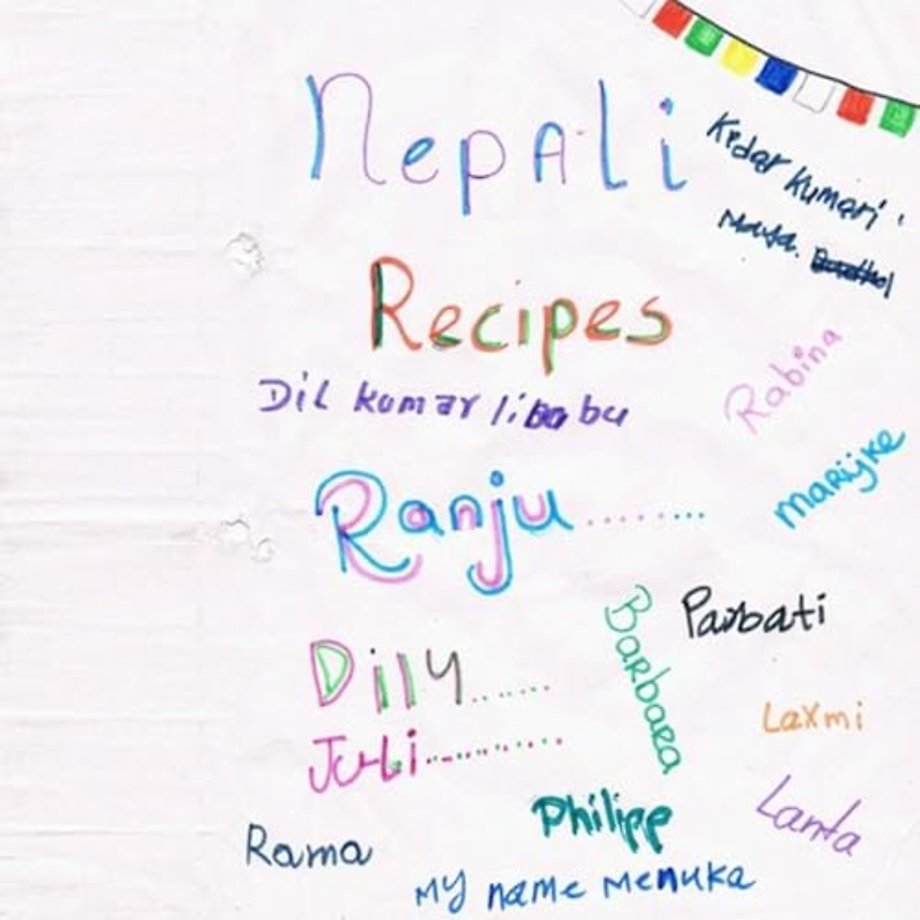 Nepali
Kidar Kumari
Maya.
Recipes
Rabina
Dil kumar libabu
Marijke
Ranju........
Barbara
Parbati
Dilly......
Laxmi
Juli...........
Philipp
Lanta
Rama
My name Menuka